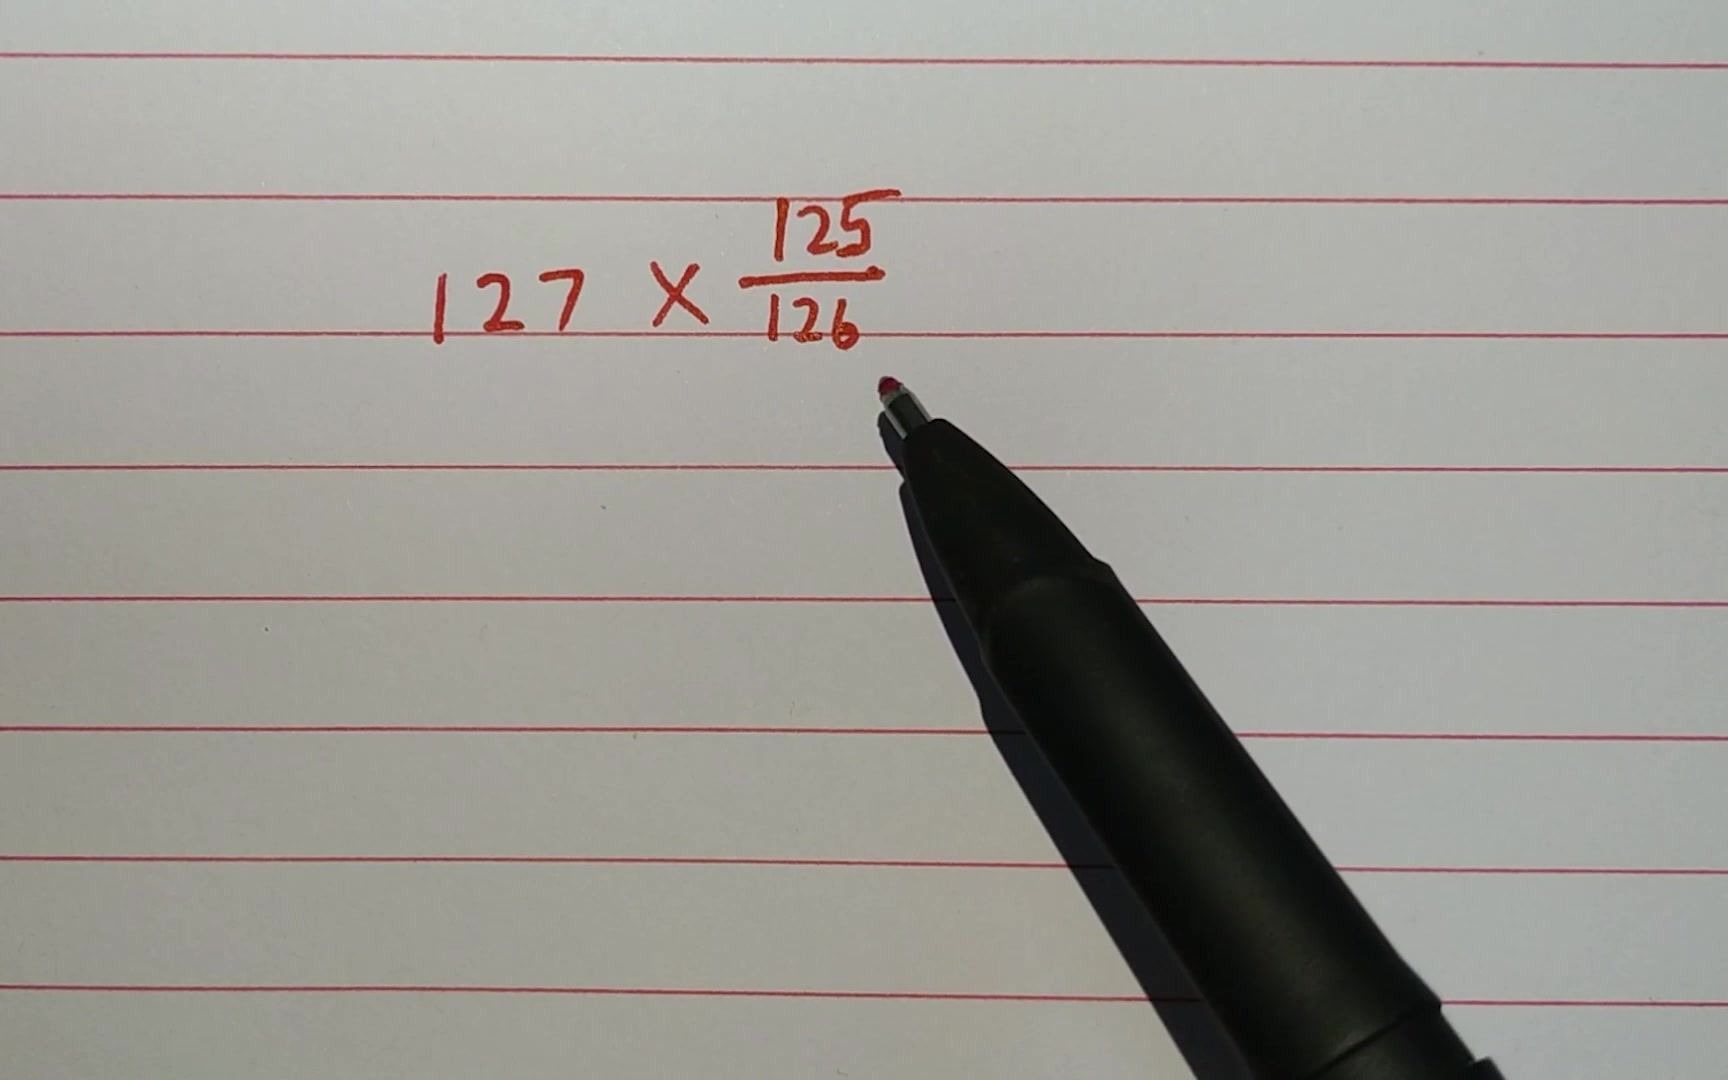 127 × 125/126